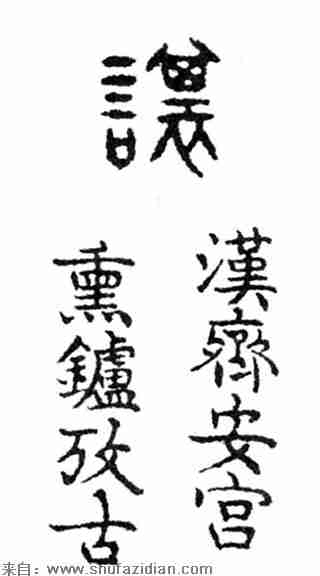 讓
漢齊安宮
熏鑪攷古
来自：www.shufazidian.com